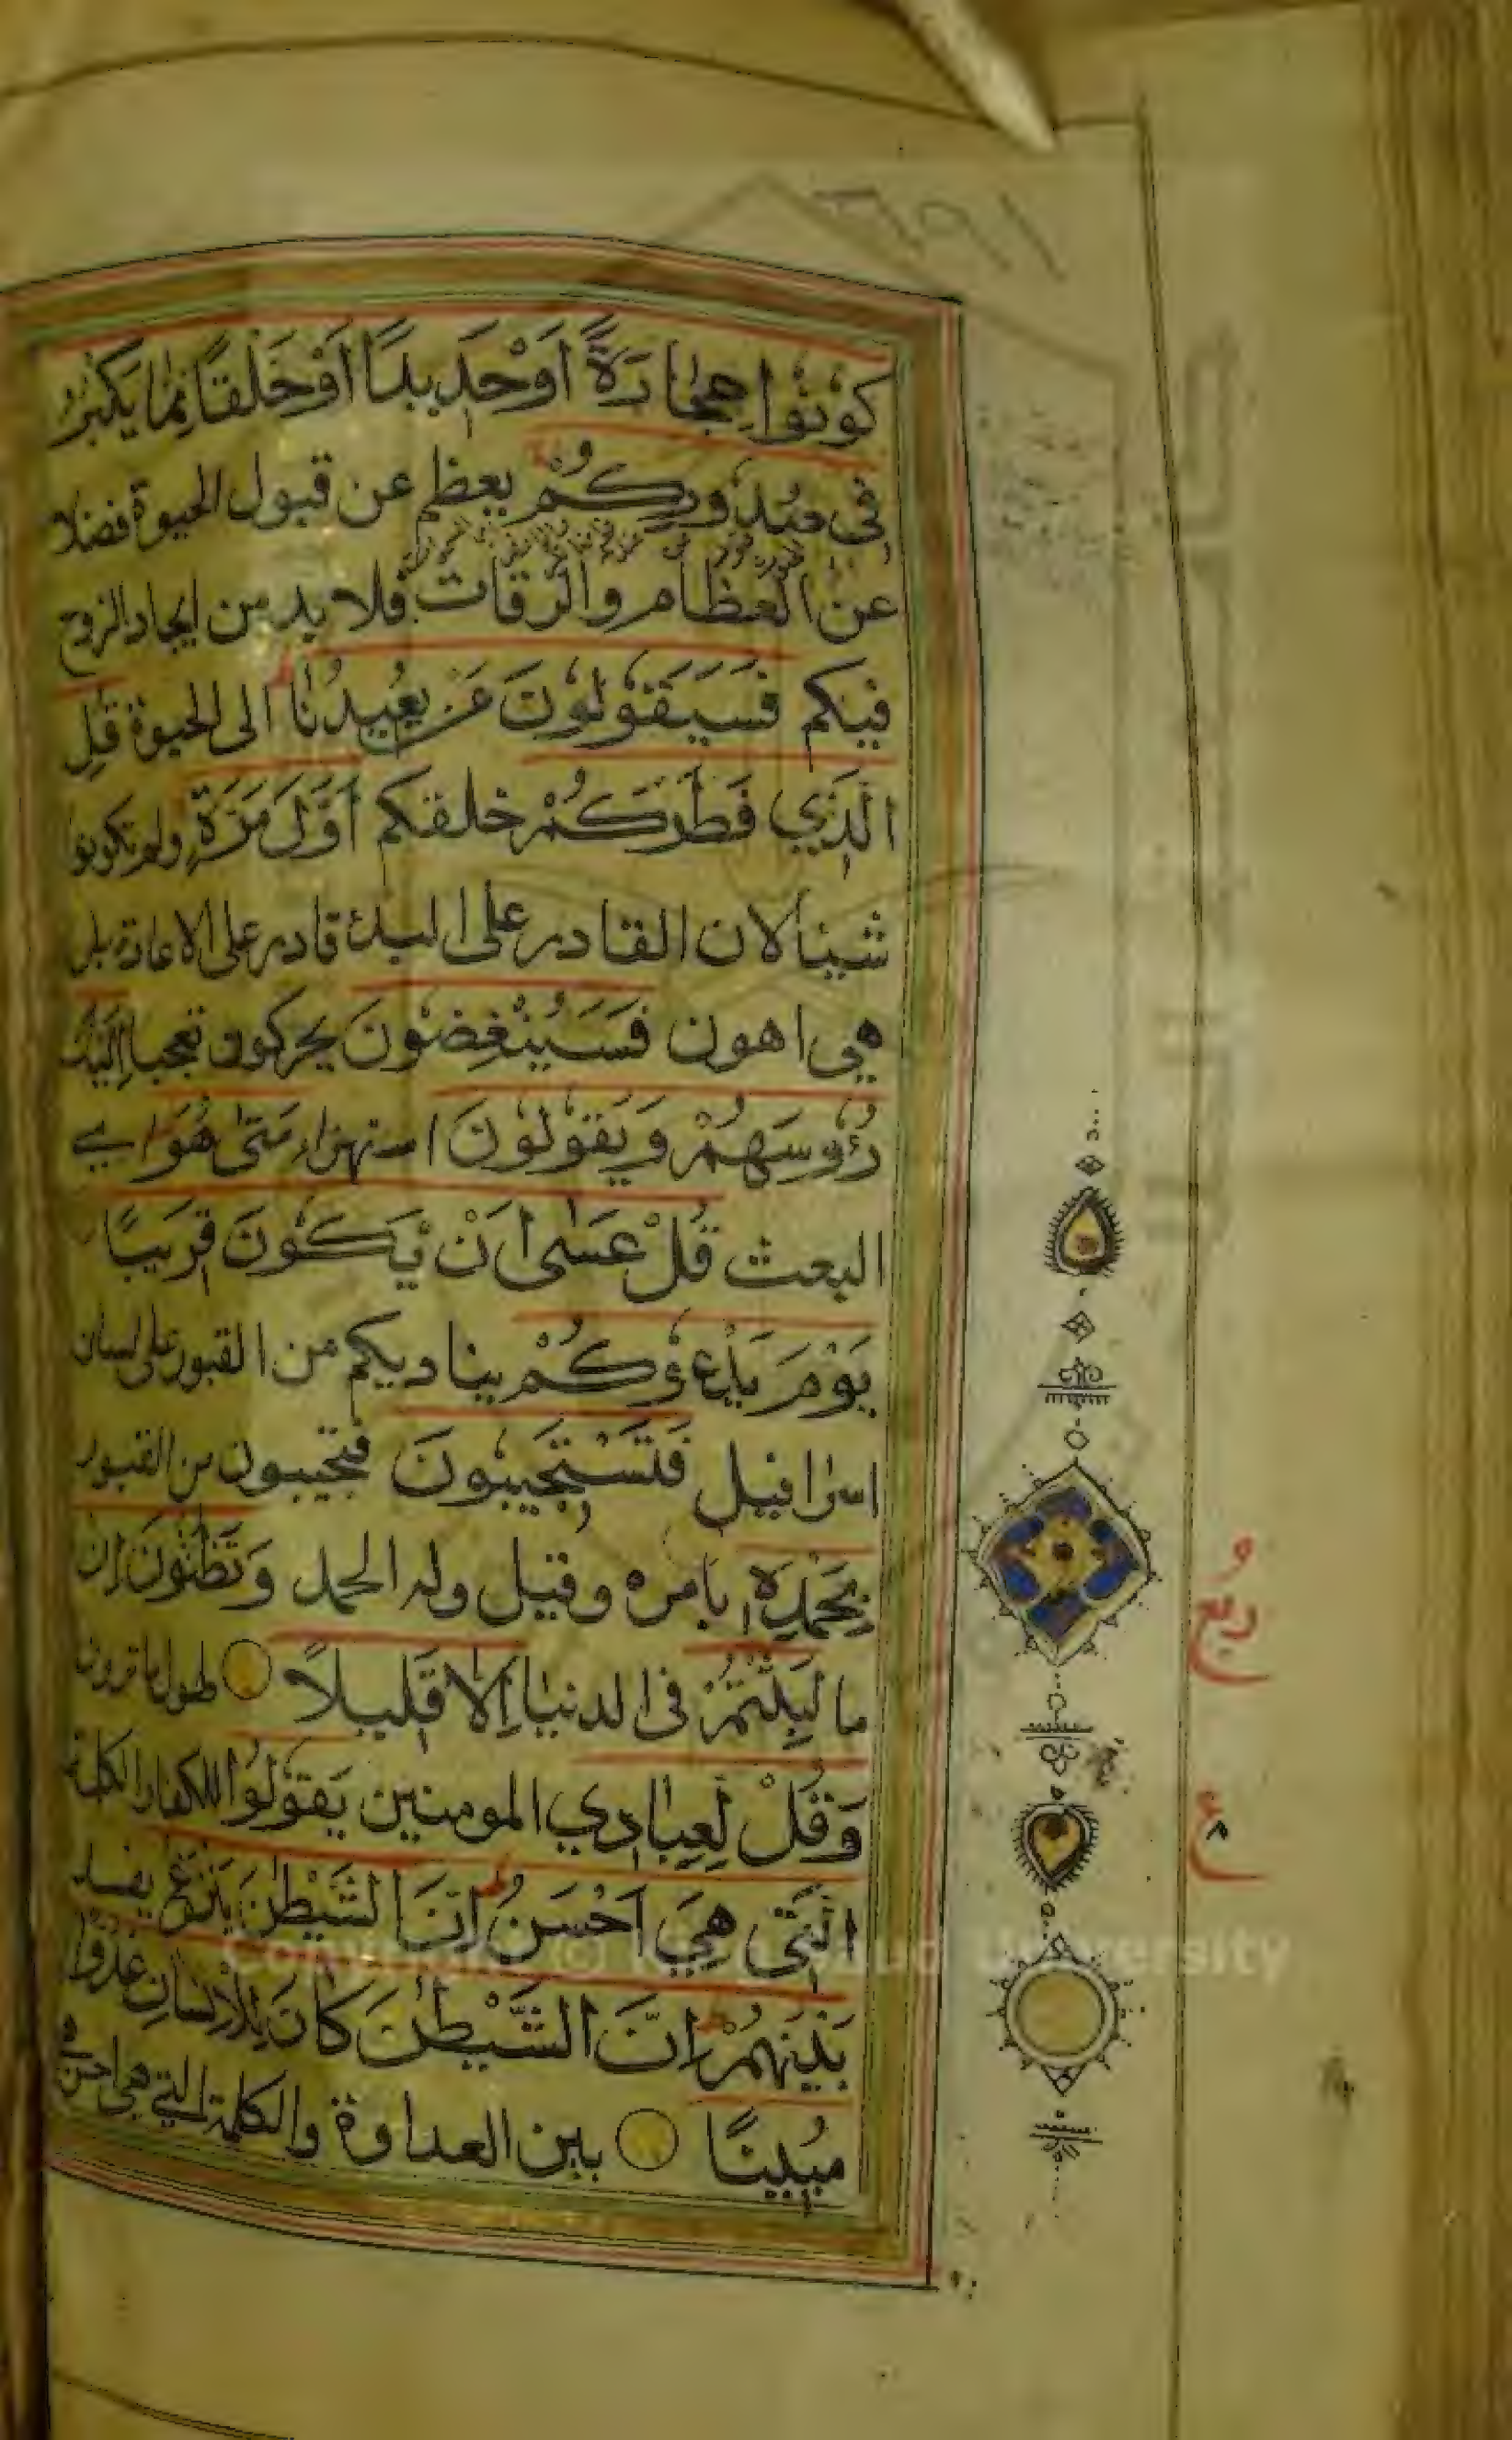 كُوْنُوْا حِجَارَةً اَوْ حَدِيدًا اَوْ خَلْقًا مِّمَّا يَكْبُرُ
فِي صُدُوْرِكُمْ يعظم عن قبول الحيوة فضلا
عن العظام والرفات فلا بد من ايجاد الروح
فيكم فَسَيَقُوْلُوْنَ مَنْ يُعِيدُنَا الى الحيوة قُلِ
الَّذِي فَطَرَكُمْ خلقكم اَوَّلَ مَرَّةٍ ولم تكونوا
شيئا لان القادر على البدئ قادر على الاعادة بل
هي اهون فَسَيُنْغِضُوْنَ يحركون تعجبا اِلَيْكَ
رُؤُوسَهُمْ وَيَقُوْلُوْنَ استهزاء مَتٰى هُوَ اي
البعث قُلْ عَسٰى اَنْ يَّكُوْنَ قَرِيبًا
يَوْمَ يَدْعُوْكُمْ يناديكم من القبور على لسان
اسرافيل فَتَسْتَجِيبُوْنَ فتجيبون من القبور
بِحَمْدِهِ بامره وقيل وله الحمد وَتَظُنُّوْنَ اِنْ
ما لَبِثْتُمْ في الدنيا اِلَّا قَلِيلًا لهول ما ترون
وَقُلْ لِّعِبَادِي المومنين يَقُوْلُوا للكفار الكلمة
الَّتِي هِيَ اَحْسَنُ اِنَّ الشَّيْطٰنَ يَنْزَغُ يفسد
بَيْنَهُمْ اِنَّ الشَّيْطٰنَ كَانَ لِلْاِنْسَانِ عَدُوًّا
مُبِينًا بين العداوة والكلمة التي هي احسن هي
ربع
ع
Copyright © King Saud University